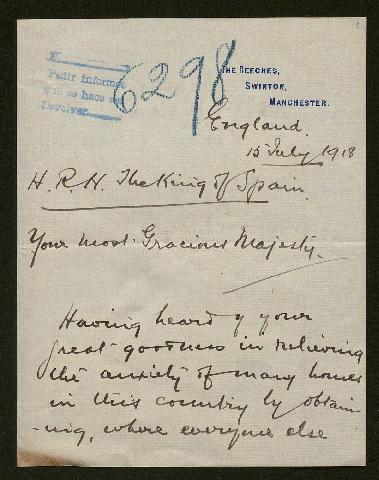 Pedir informes
que se hace
Devolver
6298
THE BEECHES,
SWINTON,
MANCHESTER.
England.
15 July 1918
H. R. H. The King of Spain.
Your most Gracious Majesty.
Having heard of your
great goodness in relieving
the anxiety of many homes
in this country by obtain-
-ing, where everyone else